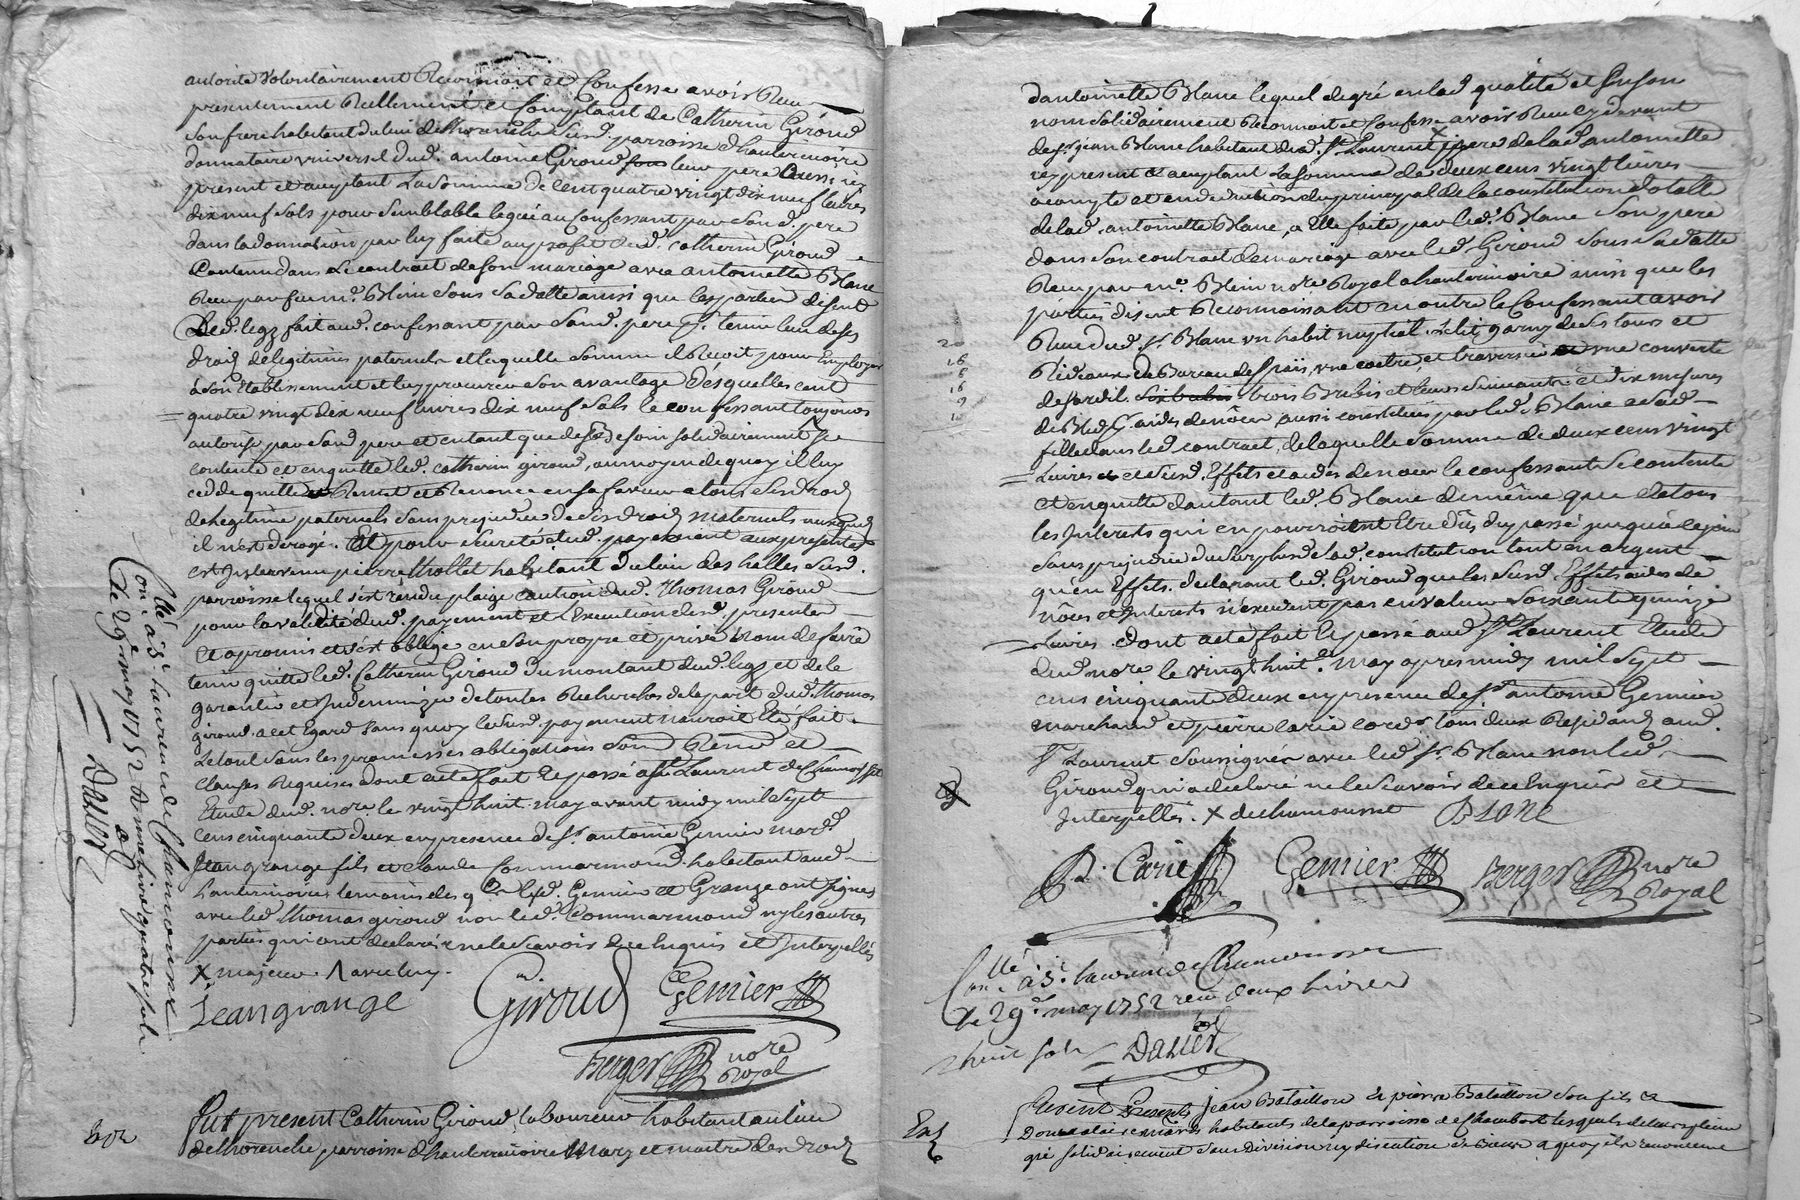 autorité volontairement Reconnoit et Confesse avoir Reçu
presentement Réellement et Comptant de Catherin Giroud
son frere habitant du lieu de Thorenche susd. parroisse d'hauterivoire
donnataire universel dud. antoine Giroud leur pere aussi icy
present et acceptant La somme de Cent quatre vingt dix neuf livres
dix neuf sols pour semblable legué au Confessant par sond. pere
dans la donnation par luy faite au profit dud. Catherin Giroud
Contenu dans Le contract de son mariage avec antoinette Blanc
Reçu par feu me. Blein sous sa datte ainsi que les parties disent
Led. legz fait aud. confessant par sond. pere pr. tenir lieu de ses
droits de legitimes paternels et laquelle somme il Reçoit pour Employer
à son Etablissement et luy procurer son avantage Desquelles cent
quatre vingt dix neuf livres dix neuf sols le confessant toujours
autorisé par sond. pere et entant que de Besoin solidairement se
contente et en quitte led. Catherin giroud, au moyen de quoy il luy
cedde quitte Remet et Renonce en sa faveur a tous ses droits
de Legitime paternels sans prejudice de ses droits maternels auxquels
il n'est derogé. Et pour seureté dud. payement aux presentes
est Intervenu pierre thollet habitant du lieu des halles susd.
parroisse lequel s'est rendu plaige caution dud. Thomas Giroud
pour la validité dud. payement et Execution desd. presentes
Et a promis et s'est obligé en son propre et privé nom de faire
tenir quitte led. Catherin Giroud du montant dud. legz et de le
garantir et Indemnizer de toutes Recherches de la part dud. Thomas
giroud a cet Egard sans quoy le susd. payement n'auroit Eté fait
Le tout sous les promesses obligations Soumd. Rend. et
Clauses Requises dont acte fait et passé a St. Laurent de Chamousset
Etude dud. nore. le vingt huit may avant midy mil sept
cens cinquante deux en presence de Sr. antoine Gemier mard.
Jean grange fils et claude Commarmond habitant aud.
hauterivoire temoins Lesd. Gemier et Grange ont signés
avec led. Thomas giroud non led. Commarmond ny les autres
parties qui ont declarés ne le scavoir de ce Enquis et Interpellés
X majeur. avec luy.
Jean grange Giroud Gemier
Berger nore Royal
Conllé a St Laurent de Chamousset
Le 29e. may 1752
Dalier
Fut present Catherin Giroud, laboureur habitant au lieu
de Thorenche, parroisse d'hauterivoire Mary et maitre des droits
d'antoinette Blanc lequel de gré en lad. qualité et En son
nom solidairement Reconnoit et Confesse avoir Reçu cy devant
de Sr. jean Blanc habitant dud. St Laurent pere de lad. antoinette
icy present et acceptant La somme de deux cens vingt livres
acompte et en deduction du principal de la constitution dotalle
de lad. antoinette Blanc, a Elle faite par led. Blanc son pere
dans son contract de mariage avec led. Giroud sous sa datte
Reçu par me. Blein nore Royal a hauterivoire ainsi que les
parties disent Reconnoissant en outre le Confessant avoir
Reçu dud. Sr. Blanc un habit nuptial, un lit garny de ses tours et
Rideaux de Bureau de païs, une coitre, et traversin une couverte
de sardil. trois Brebis et leurs suivants et dix mesures
de Bled pr. aides de nôces aussi constitués par led. Blanc a sad.
fille dans led. contract, de laquelle somme de deux cens vingt
Livres et susd. Effets et aides de noces le confessant se contente
Et en quitte d'autant led. Blanc de même que de tous
les Interests qui en pourroient Etre dûs du passé jusqu'à ce jour
sans prejudice du surplus de lad. constitution tant en argent
qu'en Effets. declarant led. Giroud que les susd. Effets aides de
nôces et Interests n'excedent pas en valeur soixante quinze
Livres. dont acte fait et passé aud. St Laurent Etude
dud. nore le vingt huite. may apres midy mil sept
cens cinquante deux en presence de Sr. antoine Gemier
marchand et pierre carie cordr. tous deux Residants aud.
St Laurent soussignés avec led. Sr. Blanc non led.
Giroud qui a declaré ne le scavoir de ce Enquis et
Interpellé. X de chamousset Blanc
P. Carie Gemier Berger nore Royal
Conllé a St. Laurent de Chamousset
le 29e. may 1752 reçu deux livres
huit sols Dalier
Furent Presents Jean Bataillon et pierre Bataillon son fils
habitants de la parroisse de Chambost lesquels de leur plein
gré solidairement sans division ny discution a quoy ils renoncent